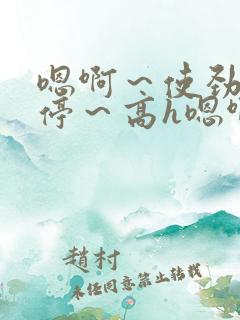 嗯啊～使劲
停～高h嗯啊
趙村
未经同意禁止转载